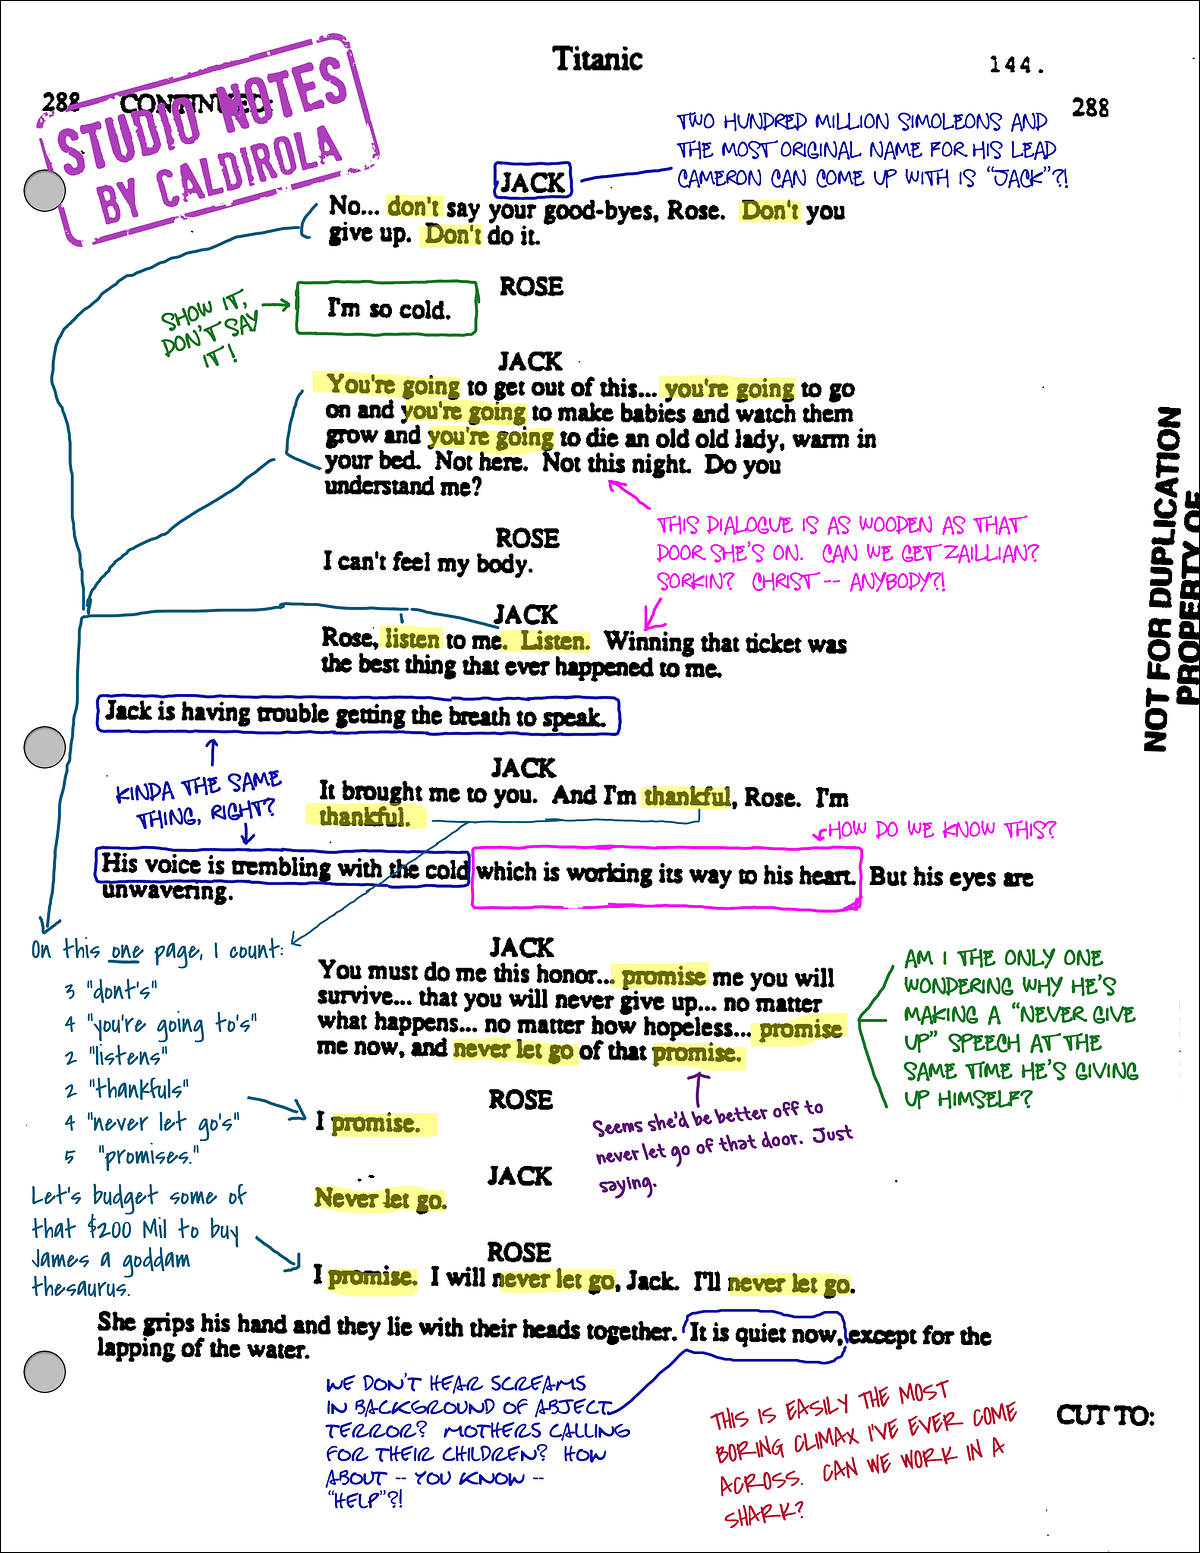 Titanic
144.
288 CONTINUED: 288
STUDIO NOTES
BY CALDIROLA
TWO HUNDRED MILLION SIMOLEONS AND
THE MOST ORIGINAL NAME FOR HIS LEAD
CAMERON CAN COME UP WITH IS "JACK"?!
JACK
No... don't say your good-byes, Rose. Don't you
give up. Don't do it.
ROSE
I'm so cold.
SHOW IT,
DON'T SAY
IT!
JACK
You're going to get out of this... you're going to go
on and you're going to make babies and watch them
grow and you're going to die an old old lady, warm in
your bed. Not here. Not this night. Do you
understand me?
THIS DIALOGUE IS AS WOODEN AS THAT
DOOR SHE'S ON. CAN WE GET ZAILLIAN?
SORKIN? CHRIST -- ANYBODY?!
ROSE
I can't feel my body.
JACK
Rose, listen to me. Listen. Winning that ticket was
the best thing that ever happened to me.
NOT FOR DUPLICATION
PROPERTY OF
Jack is having trouble getting the breath to speak.
KINDA THE SAME
THING, RIGHT?
JACK
It brought me to you. And I'm thankful, Rose. I'm
thankful.
HOW DO WE KNOW THIS?
His voice is trembling with the cold which is working its way to his heart. But his eyes are
unwavering.
On this one page, I count:
3 "dont's"
4 "you're going to's"
2 "listens"
2 "thankfuls"
4 "never let go's"
5 "promises."
Let's budget some of
that $200 Mil to buy
James a goddam
thesaurus.
JACK
You must do me this honor... promise me you will
survive... that you will never give up... no matter
what happens... no matter how hopeless... promise
me now, and never let go of that promise.
AM I THE ONLY ONE
WONDERING WHY HE'S
MAKING A "NEVER GIVE
UP" SPEECH AT THE
SAME TIME HE'S GIVING
UP HIMSELF?
ROSE
I promise.
Seems she'd be better off to
never let go of that door. Just
saying.
JACK
Never let go.
ROSE
I promise. I will never let go, Jack. I'll never let go.
She grips his hand and they lie with their heads together. It is quiet now, except for the
lapping of the water.
WE DON'T HEAR SCREAMS
IN BACKGROUND OF ABJECT
TERROR? MOTHERS CALLING
FOR THEIR CHILDREN? HOW
ABOUT -- YOU KNOW --
"HELP"?!
THIS IS EASILY THE MOST
BORING CLIMAX I'VE EVER COME
ACROSS. CAN WE WORK IN A
SHARK?
CUT TO: